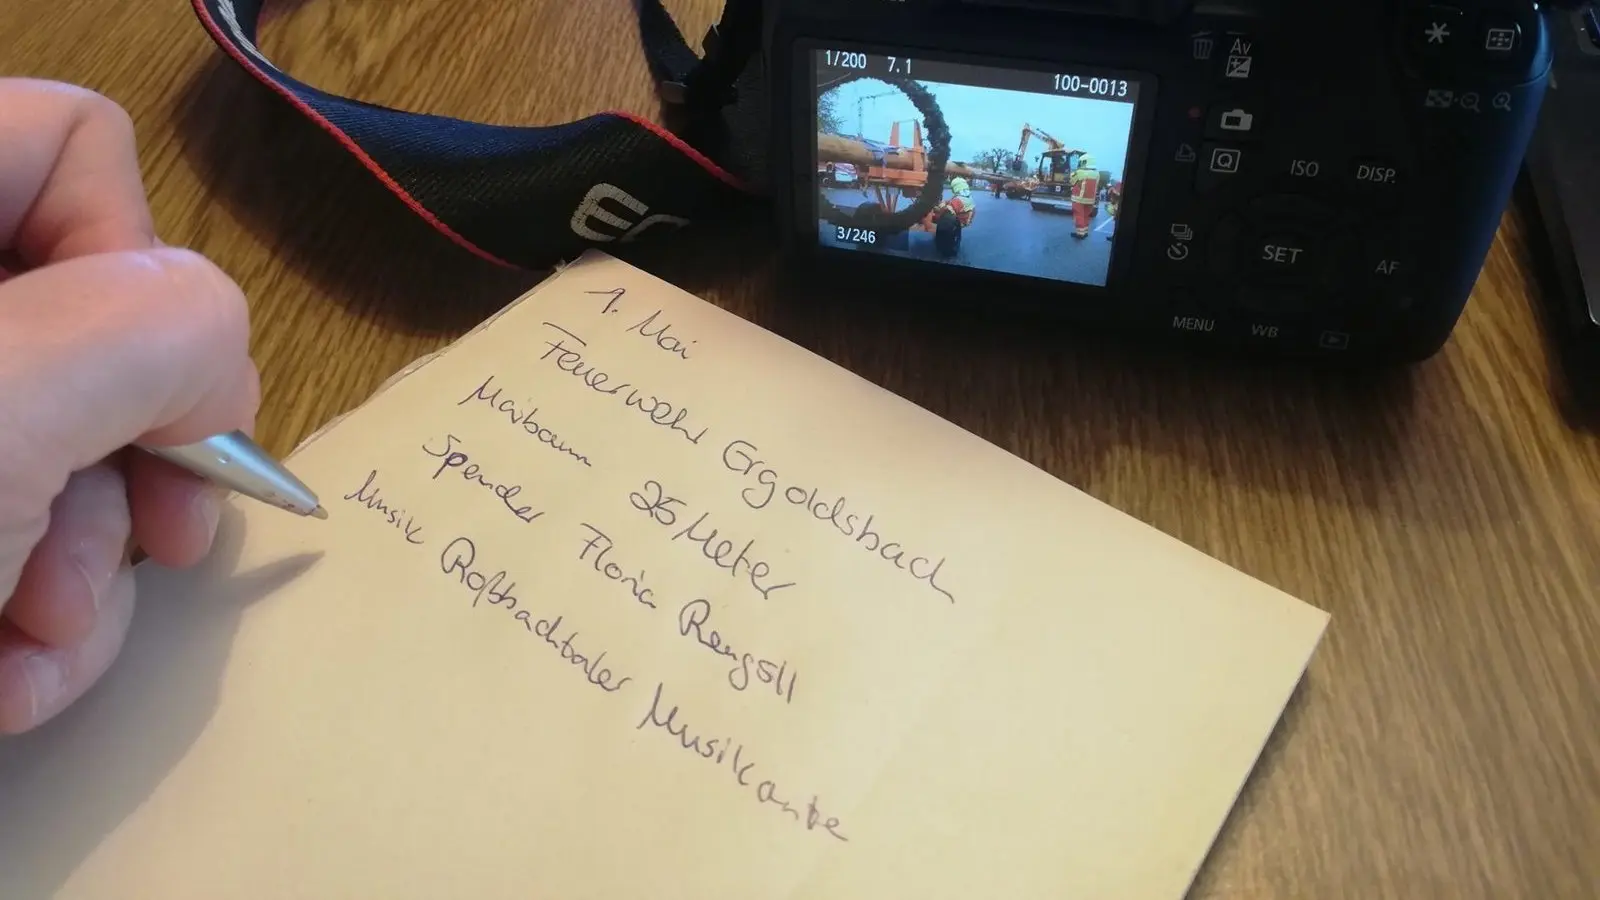 1/200 7.1 100-0013
3/246
Av
ISO DISP.
Q
SET AF
MENU WB
1. Mai
Feuerwehr Ergoldsbach
Maibaum 25 Meter
Spender Florian Rengöll
Musik Roßbachtaler Musikante